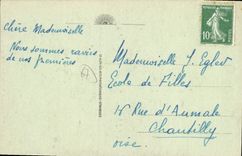 Chère Mademoiselle
Nous sommes ravies
de nos premières
Mademoiselle J. Egler
Ecole de Filles
15 Rue d'Aumale
Chantilly
Oise.
10